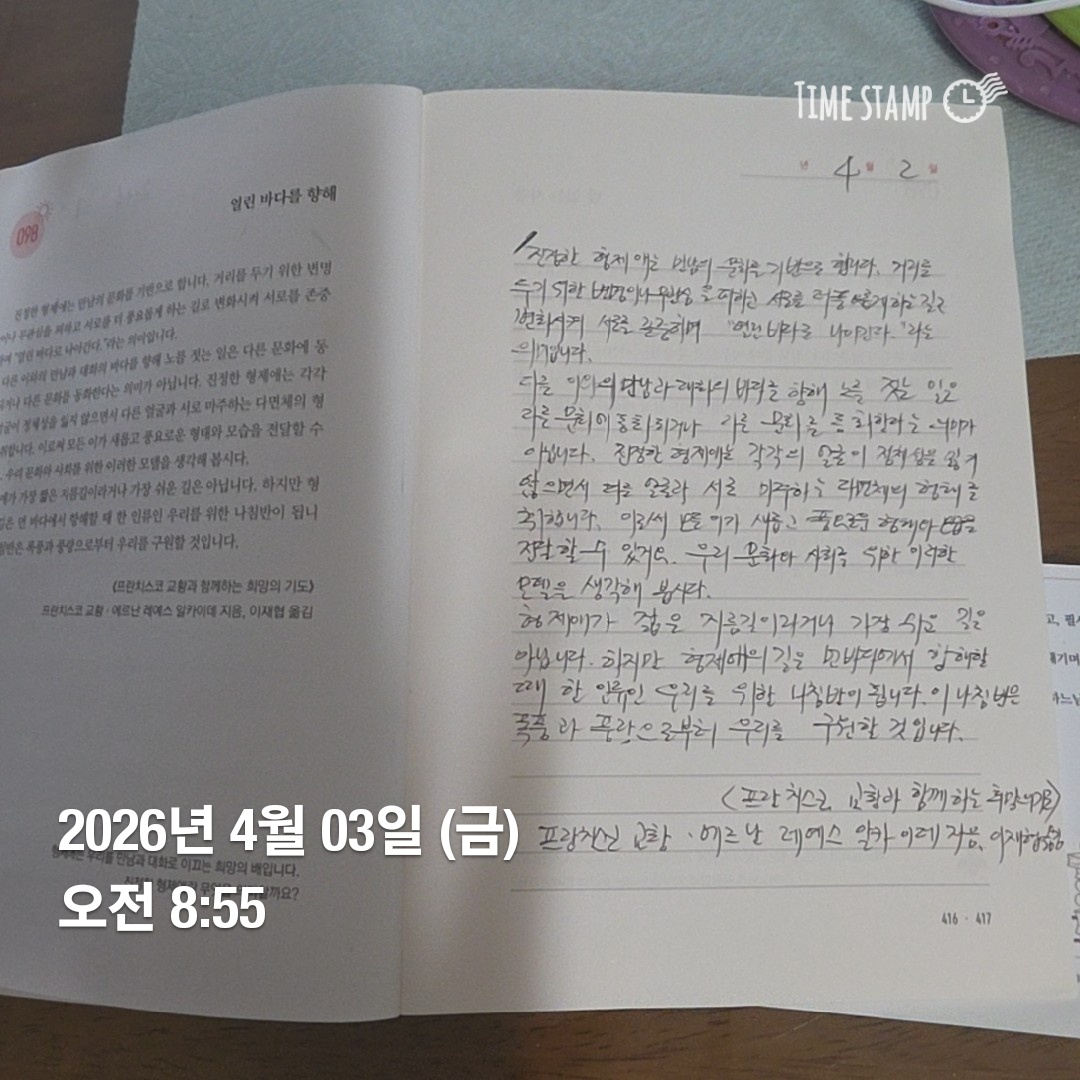 TIME STAMP
098
열린 바다를 향해
진정한 형제애는 만남의 문화를 기반으로 합니다. 거리를 두기 위한 변명
이나 무관심을 피하고 서로를 더 풍요롭게 하는 길로 변화시켜 서로를 존중
하며 "열린 바다로 나아간다."라는 의미입니다.
다른 이와의 만남과 대화의 바다를 향해 노를 젓는 일은 다른 문화에 동
되거나 다른 문화를 동화한다는 의미가 아닙니다. 진정한 형제애는 각각
얼굴이 정체성을 잃지 않으면서 다른 얼굴과 서로 마주하는 다면체의 형
취합니다. 이로써 모든 이가 새롭고 풍요로운 형태와 모습을 전달할 수
우리 문화와 사회를 위한 이러한 모델을 생각해 봅시다.
애가 가장 짧은 지름길이라거나 가장 쉬운 길은 아닙니다. 하지만 형
길은 먼 바다에서 항해할 때 한 인류인 우리를 위한 나침반이 됩니
침반은 폭풍과 풍랑으로부터 우리를 구원할 것입니다.
《프란치스코 교황과 함께하는 희망의 기도》
프란치스코 교황·에르난 레예스 알카이데 지음, 이재협 옮김
형제애는 우리를 만남과 대화로 이끄는 희망의 배입니다.
년 4월 2일
진정한 형제애는 만남의 문화를 기반으로 합니다. 거리를
두기 위한 변명이나 무관심을 피하고 서로를 더 풍요롭게 하는 길로
변화시켜 서로를 존중하며 "열린 바다로 나아간다."라는
의미입니다.
다른 이와의 만남과 대화의 바다를 향해 노를 젓는 일은
다른 문화에 동화되거나 다른 문화를 동화한다는 의미가
아닙니다. 진정한 형제애는 각각의 얼굴이 정체성을 잃지
않으면서 다른 얼굴과 서로 마주하는 다면체의 형태를
취합니다. 이로써 모든 이가 새롭고 풍요로운 형태와 모습을
전달할 수 있거요. 우리 문화와 사회를 위한 이러한
모델을 생각해 봅시다.
형제애가 짧은 지름길이라거나 가장 쉬운 길은
아닙니다. 하지만 형제애의 길은 먼바다에서 항해할
때 한 인류인 우리를 위한 나침반이 됩니다. 이 나침반은
폭풍과 풍랑으로부터 우리를 구원할 것입니다.
<프란치스코 교황과 함께하는 희망의 기도>
교황·에르난 레예스 알카이데 지음, 이재협 옮김
416 · 417
고, 필사
2026년 4월 03일 (금)
오전 8:55